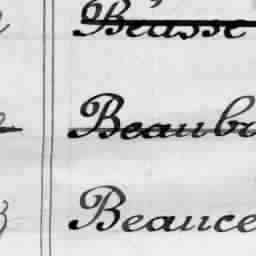 Beasse
Beaubr
Beauce